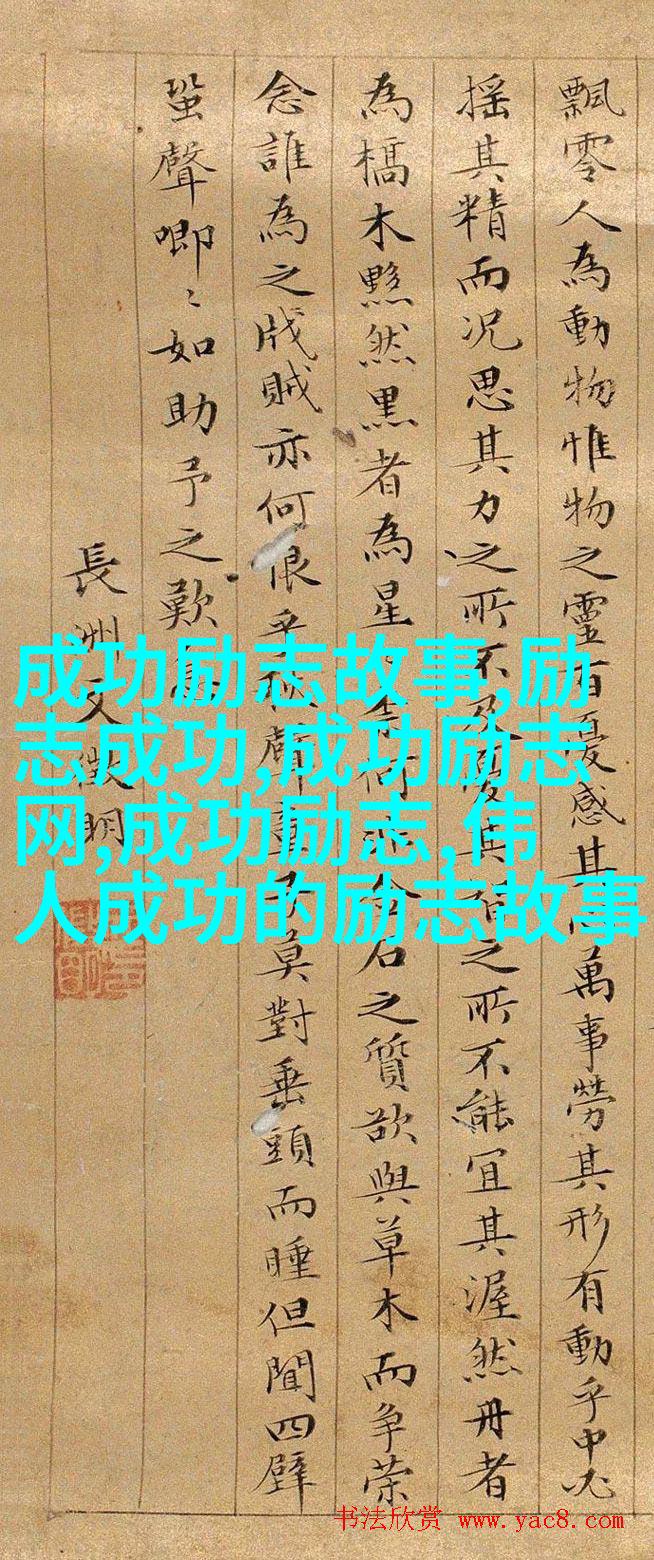 飄零人為動物惟物之靈百憂感其萬事勞其形有動乎中必
搖其精而況思其力之所不及憂其智之所不能宜其渥然丹者
為槁木黟然黑者為星奈何金石之質欲與草木而爭榮
念誰為之戕賊亦何恨乎秋聲童子莫對垂頭而睡但聞四壁
蛩聲唧〻如助予之歎息
長洲文徵明
成功励志故事,励
志成功,成功励志
网,成功励志,伟
人成功的励志故事
书法欣赏 www.yac8.com